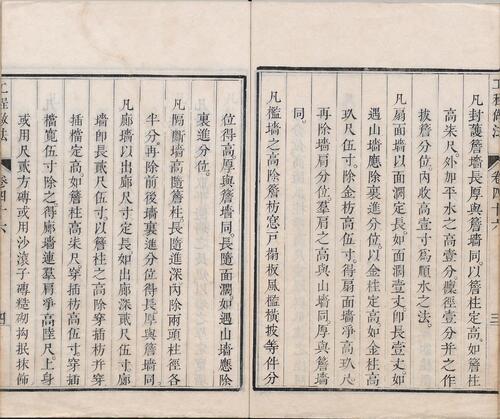 工程做法
卷四十六
三
凡封護檐墻長厚與檐墻同以檐柱定高如檐柱
高柒尺外加平水之高壹分檁徑壹分并之作
拔檐分位內收高壹寸爲順水之法
凡扇面墻以面濶定長如面濶壹丈卽長壹丈如
遇山墻應除裏進分位以金柱定高如金柱高
玖尺伍寸除金枋高伍寸得扇面墻淨高玖尺
再除墻肩分位羣肩之高與山墻同厚與檐墻
同
凡檻墻之高除檐枋窓戶榻板風檻橫披等件分
位得高厚與檐墻同長隨面濶如遇山墻應除
裏進分位
凡隔斷墻高隨檐柱長隨進深內除兩頭柱徑各
半分再除前後墻裏進分位得長厚與檐墻同
凡廊墻以出廊尺寸定長如出廊深貳尺伍寸廊
墻卽長貳尺伍寸以檐柱之高除穿插枋并穿
插檔定高如檐柱高柒尺穿插枋高伍寸穿插
檔寬伍寸除之得廊墻連羣肩淨高陸尺上身
或用尺貳方磚或用沙滾子磚糙砌抅抿抹餙
工程做法
卷四十六
四